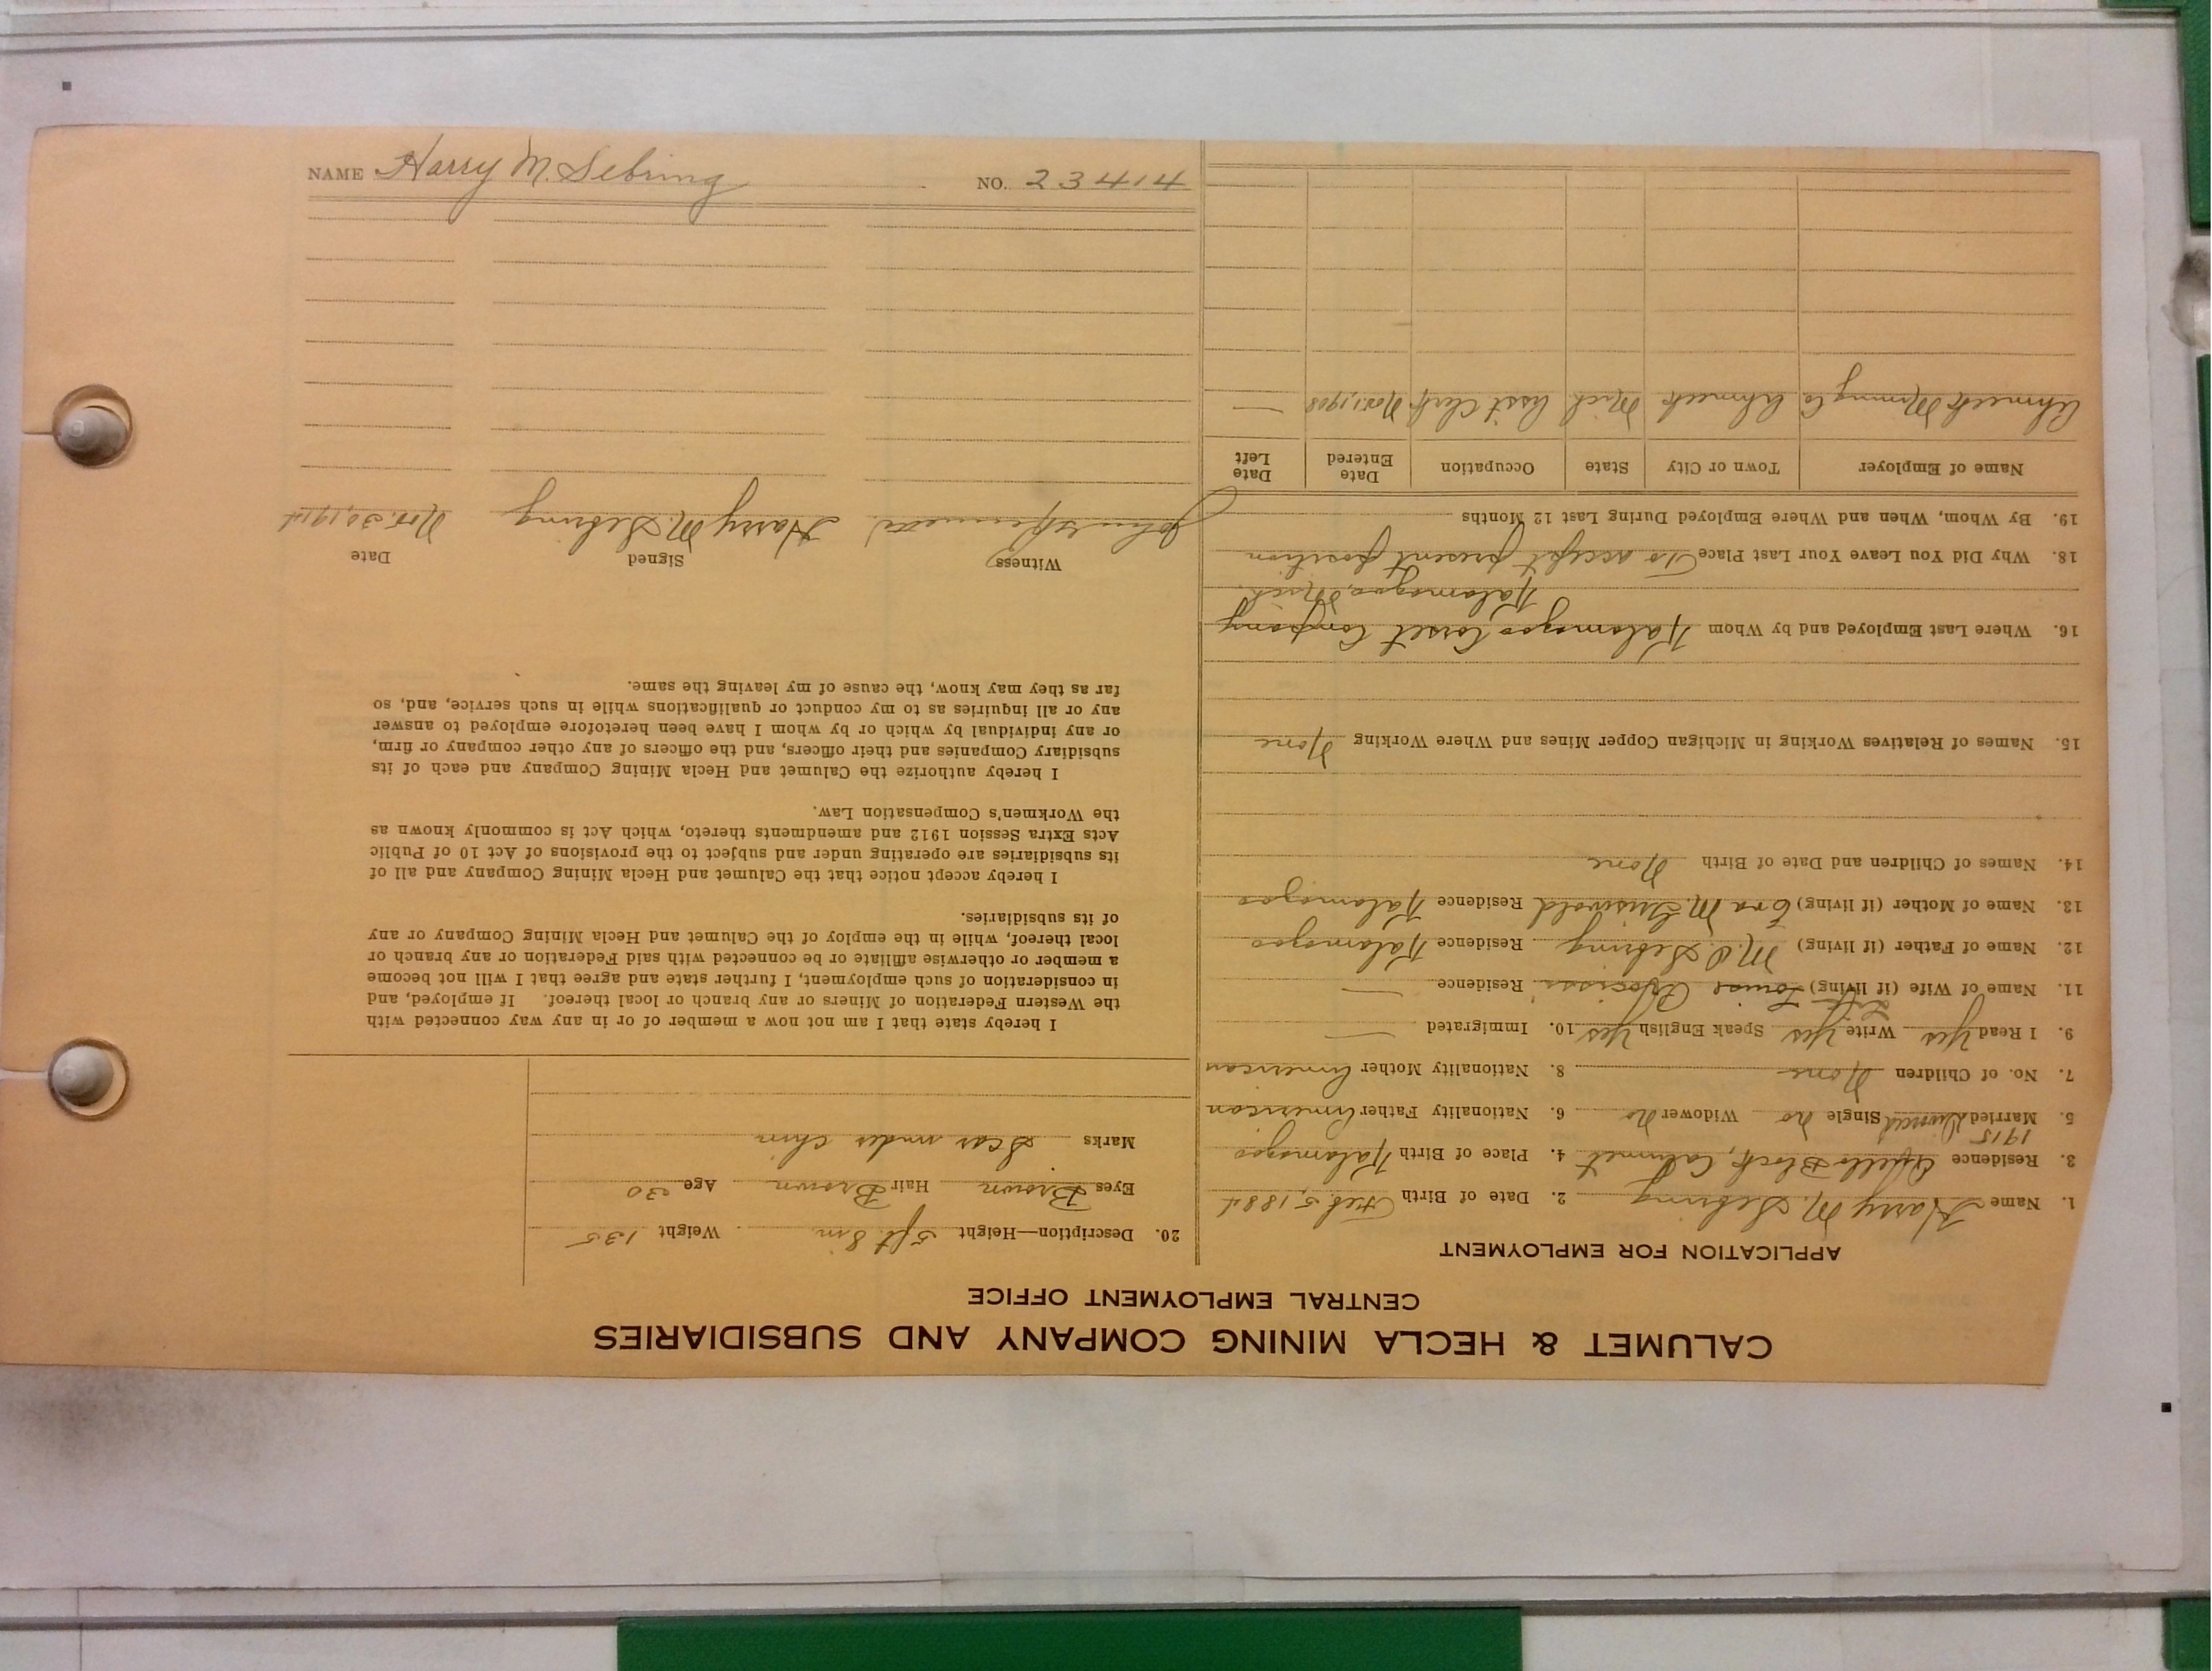 CALUMET & HECLA MINING COMPANY AND SUBSIDIARIES
CENTRAL EMPLOYMENT OFFICE
APPLICATION FOR EMPLOYMENT
1. Name Harry M. Sebring 2. Date of Birth Feb 5, 1884
3. Residence Block, Calumet 4. Place of Birth Kalamazoo
1915
5. Married Single no Widower no 6. Nationality Father American
7. No. of Children None 8. Nationality Mother American
9. I Read Yes Write Yes Speak English Yes 10. Immigrated —
11. Name of Wife (if living) Residence —
12. Name of Father (if living) M.O. Sebring Residence Kalamazoo
13. Name of Mother (if living) Ora M. Griswold Residence Kalamazoo
14. Names of Children and Date of Birth None
15. Names of Relatives Working in Michigan Copper Mines and Where Working None
16. Where Last Employed and by Whom Kalamazoo Corset Company
Kalamazoo, Mich.
18. Why Did You Leave Your Last Place To accept present position
19. By Whom, When and Where Employed During Last 12 Months
Name of Employer Town or City State Occupation Date Entered Date Left
Ahmeek Mining Co Ahmeek Mich Asst Clerk Nov. 1, 1908 —
20. Description—Height 5 ft. 8 in Weight 135
Eyes Brown Hair Brown Age 30
Marks Scar under chin
I hereby state that I am not now a member of or in any way connected with
the Western Federation of Miners or any branch or local thereof. If employed, and
in consideration of such employment, I further state and agree that I will not become
a member or otherwise affiliate or be connected with said Federation or any branch or
local thereof, while in the employ of the Calumet and Hecla Mining Company or any
of its subsidiaries.
I hereby accept notice that the Calumet and Hecla Mining Company and all of
its subsidiaries are operating under and subject to the provisions of Act 10 of Public
Acts Extra Session 1912 and amendments thereto, which Act is commonly known as
the Workmen's Compensation Law.
I hereby authorize the Calumet and Hecla Mining Company and each of its
subsidiary Companies and their officers, and the officers of any other company or firm,
or any individual by which or by whom I have been heretofore employed to answer
any or all inquiries as to my conduct or qualifications while in such service, and, so
far as they may know, the cause of my leaving the same.
Witness Signed Date
John Harry M. Sebring Nov. 30, 1914
NAME Harry M. Sebring NO. 23414